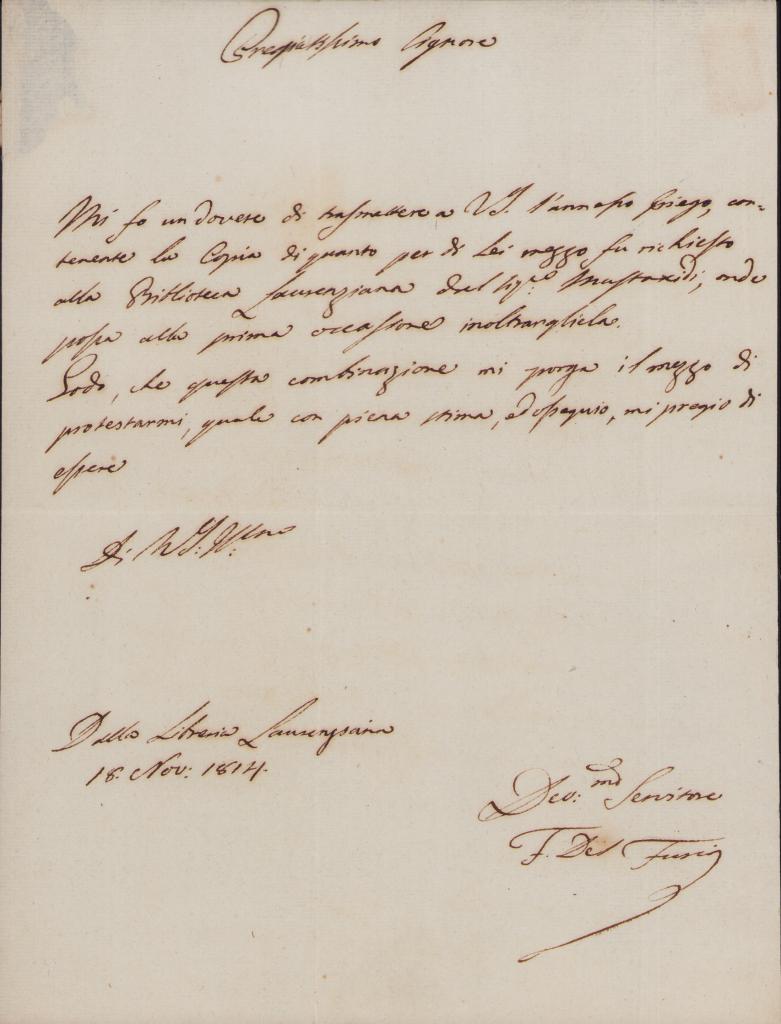 Pregiatissimo Signore
Mi fo un dovere di trasmettere a V.S. l'annesso piego, con=
tenente la Copia di quanto per di Lei mezzo fu richiesto
alla Biblioteca Laurenziana dal Sig.re Mustoxidi, onde
possa alla prima occasione inoltrargliela.
Godo, che questa combinazione mi porga il mezzo di
protestarmi, quale con piena stima, ed ossequio, mi pregio di
essere
Di V.S. Illma
Dalla Libreria Laurenziana
18. Nov: 1814.
Dev:mo Servitore
F. Del Furia